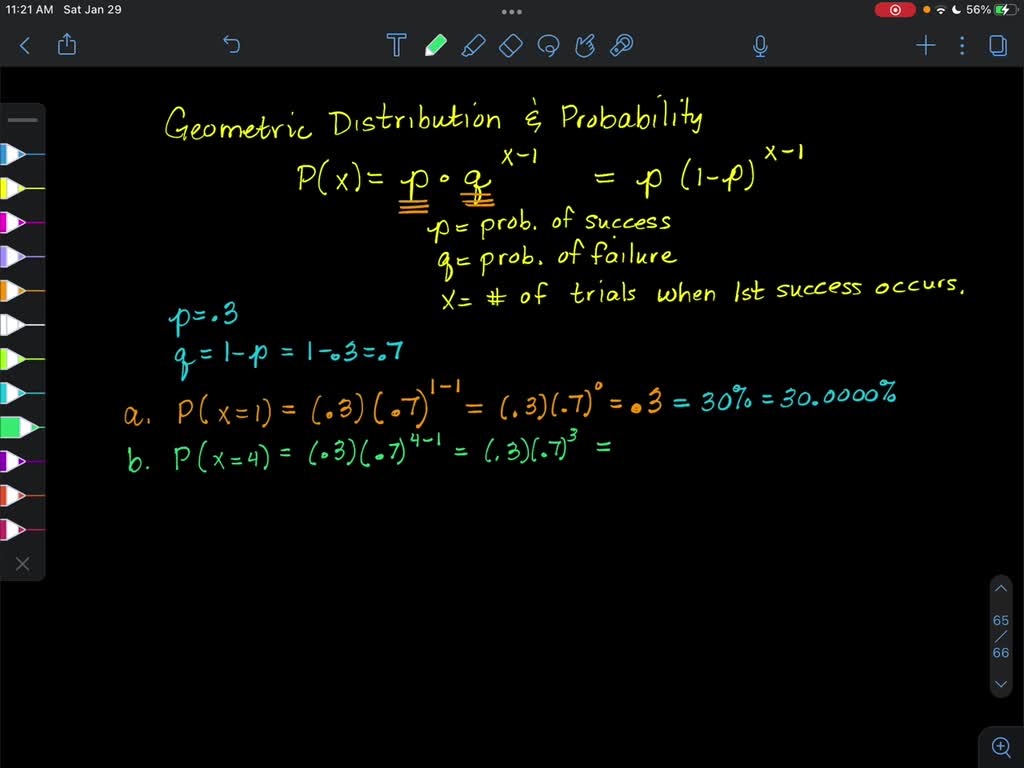 11:21 AM Sat Jan 29
56%
T
Geometric Distribution & Probability
P(x) = p • q^{x-1} = p (1-p)^{x-1}
p = prob. of success
q = prob. of failure
x = # of trials when 1st success occurs.
p = .3
q = 1-p = 1-.3 = .7
a. P(x=1) = (.3)(.7)^{1-1} = (.3)(.7)^0 = .3 = 30% = 30.0000%
b. P(x=4) = (.3)(.7)^{4-1} = (.3)(.7)^3 =
65
/
66